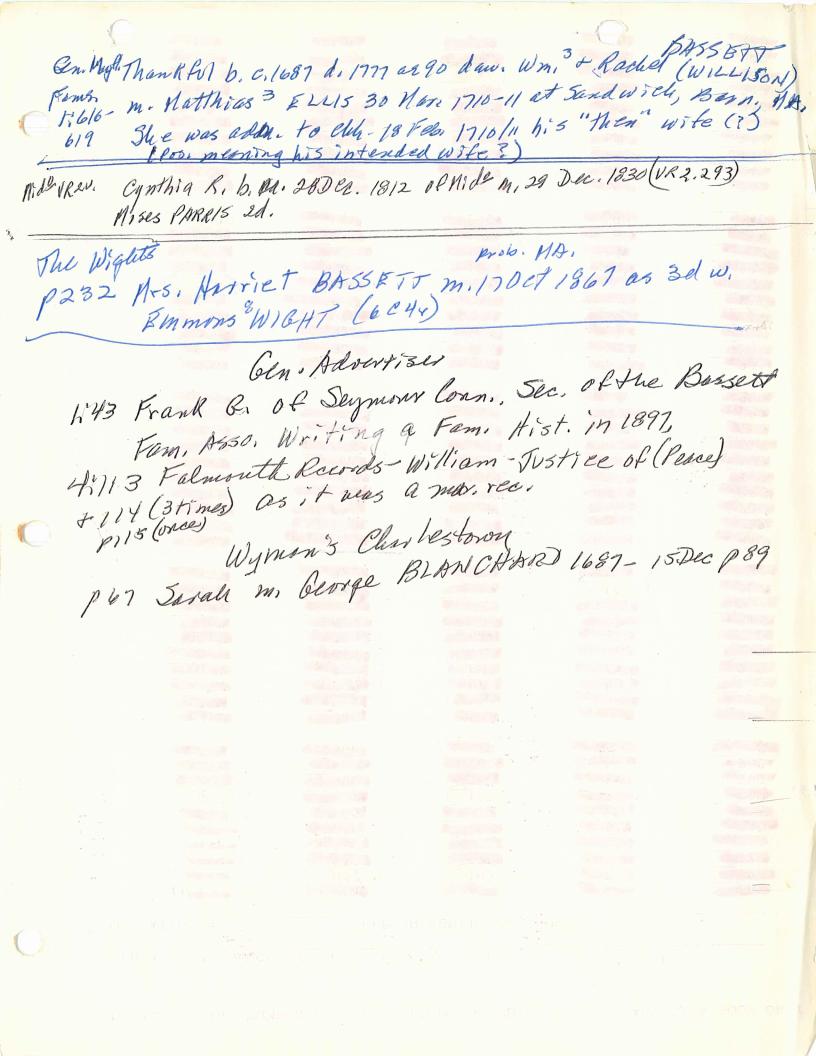 BASSETT
Gen. Mag. Thankful b. c.1687 d. 1777 ae 90 dau. Wm.³ & Rachel (WILLISON)
Fams.
1:616- m. Matthias³ ELLIS 30 Mar. 1710-11 at Sandwich, Barn., MA.
619 She was adm. to Chh. 18 Feb. 1710/11 his "then" wife (?)
(pos. meaning his intended wife?)
Midᵉ VRev. Cynthia R. b. 28 Dec. 1812 of Midᵉ m. 29 Dec. 1830 (VR2.293)
Moses PARRIS 2d.
The Wights prob. MA.
p232 Mrs. Harriet BASSETT m. 17 Oct 1867 as 3d w.
Emmons⁸ WIGHT (6C4r)
Gen. Advertiser
1:43 Frank G. of Seymour Conn., Sec. of the Bassett
Fam. Asso. Writing a Fam. Hist. in 1897.
4:113 Falmouth Records - William - Justice of (Peace)
+ 114 (3 times) as it was a mar. rec.
p115 (once)
Wyman's Charlestown
p 67 Sarah m. George BLANCHARD 1687 - 15 Dec p 89